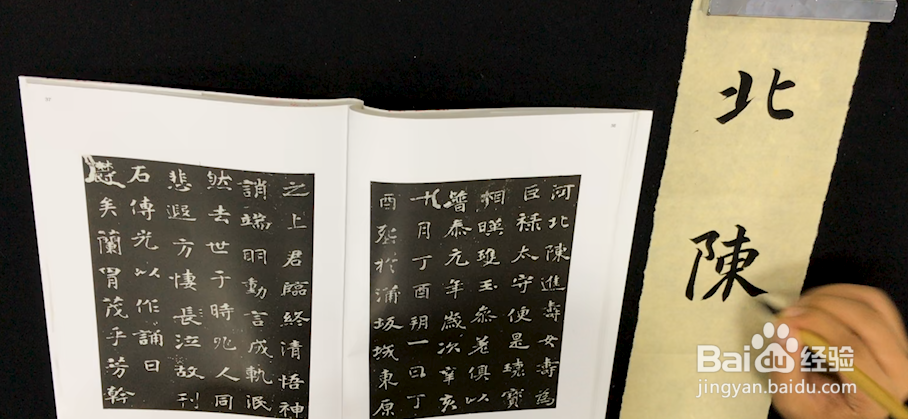 北陳
河北陳進壽女壽為
巨祿太守便是瑰寶
相暉瓊玉參差俱以
普泰元年歲次辛亥
十月丁酉朔一日丁
酉葬於蒲坂城東原
之上君臨終清悟神
誚端明動言成軌泯
然去世于時兆人同
悲遐方悽長泣故刊
石傳光以作誦曰
鬱矣蘭胄茂乎芳幹
Baidu 经验
jingyan.baidu.com